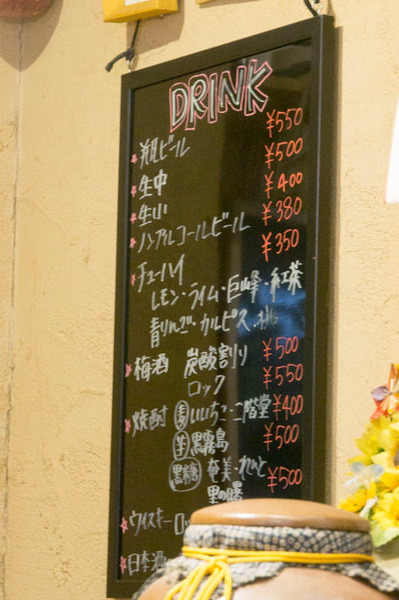 DRINK
瓶ビール ¥550
生中 ¥500
生小 ¥400
ノンアルコールビール ¥380
チューハイ ¥350
レモン・ライム・巨峰・紅茶
青りんご・カルピス・桃
梅酒 炭酸割り ¥500
ロック ¥550
焼酎 麦 いいちこ・二階堂 ¥400
芋 黒霧島 ¥500
黒糖 奄美・れんと ¥500
里の曙
ウイスキー ロ
日本酒